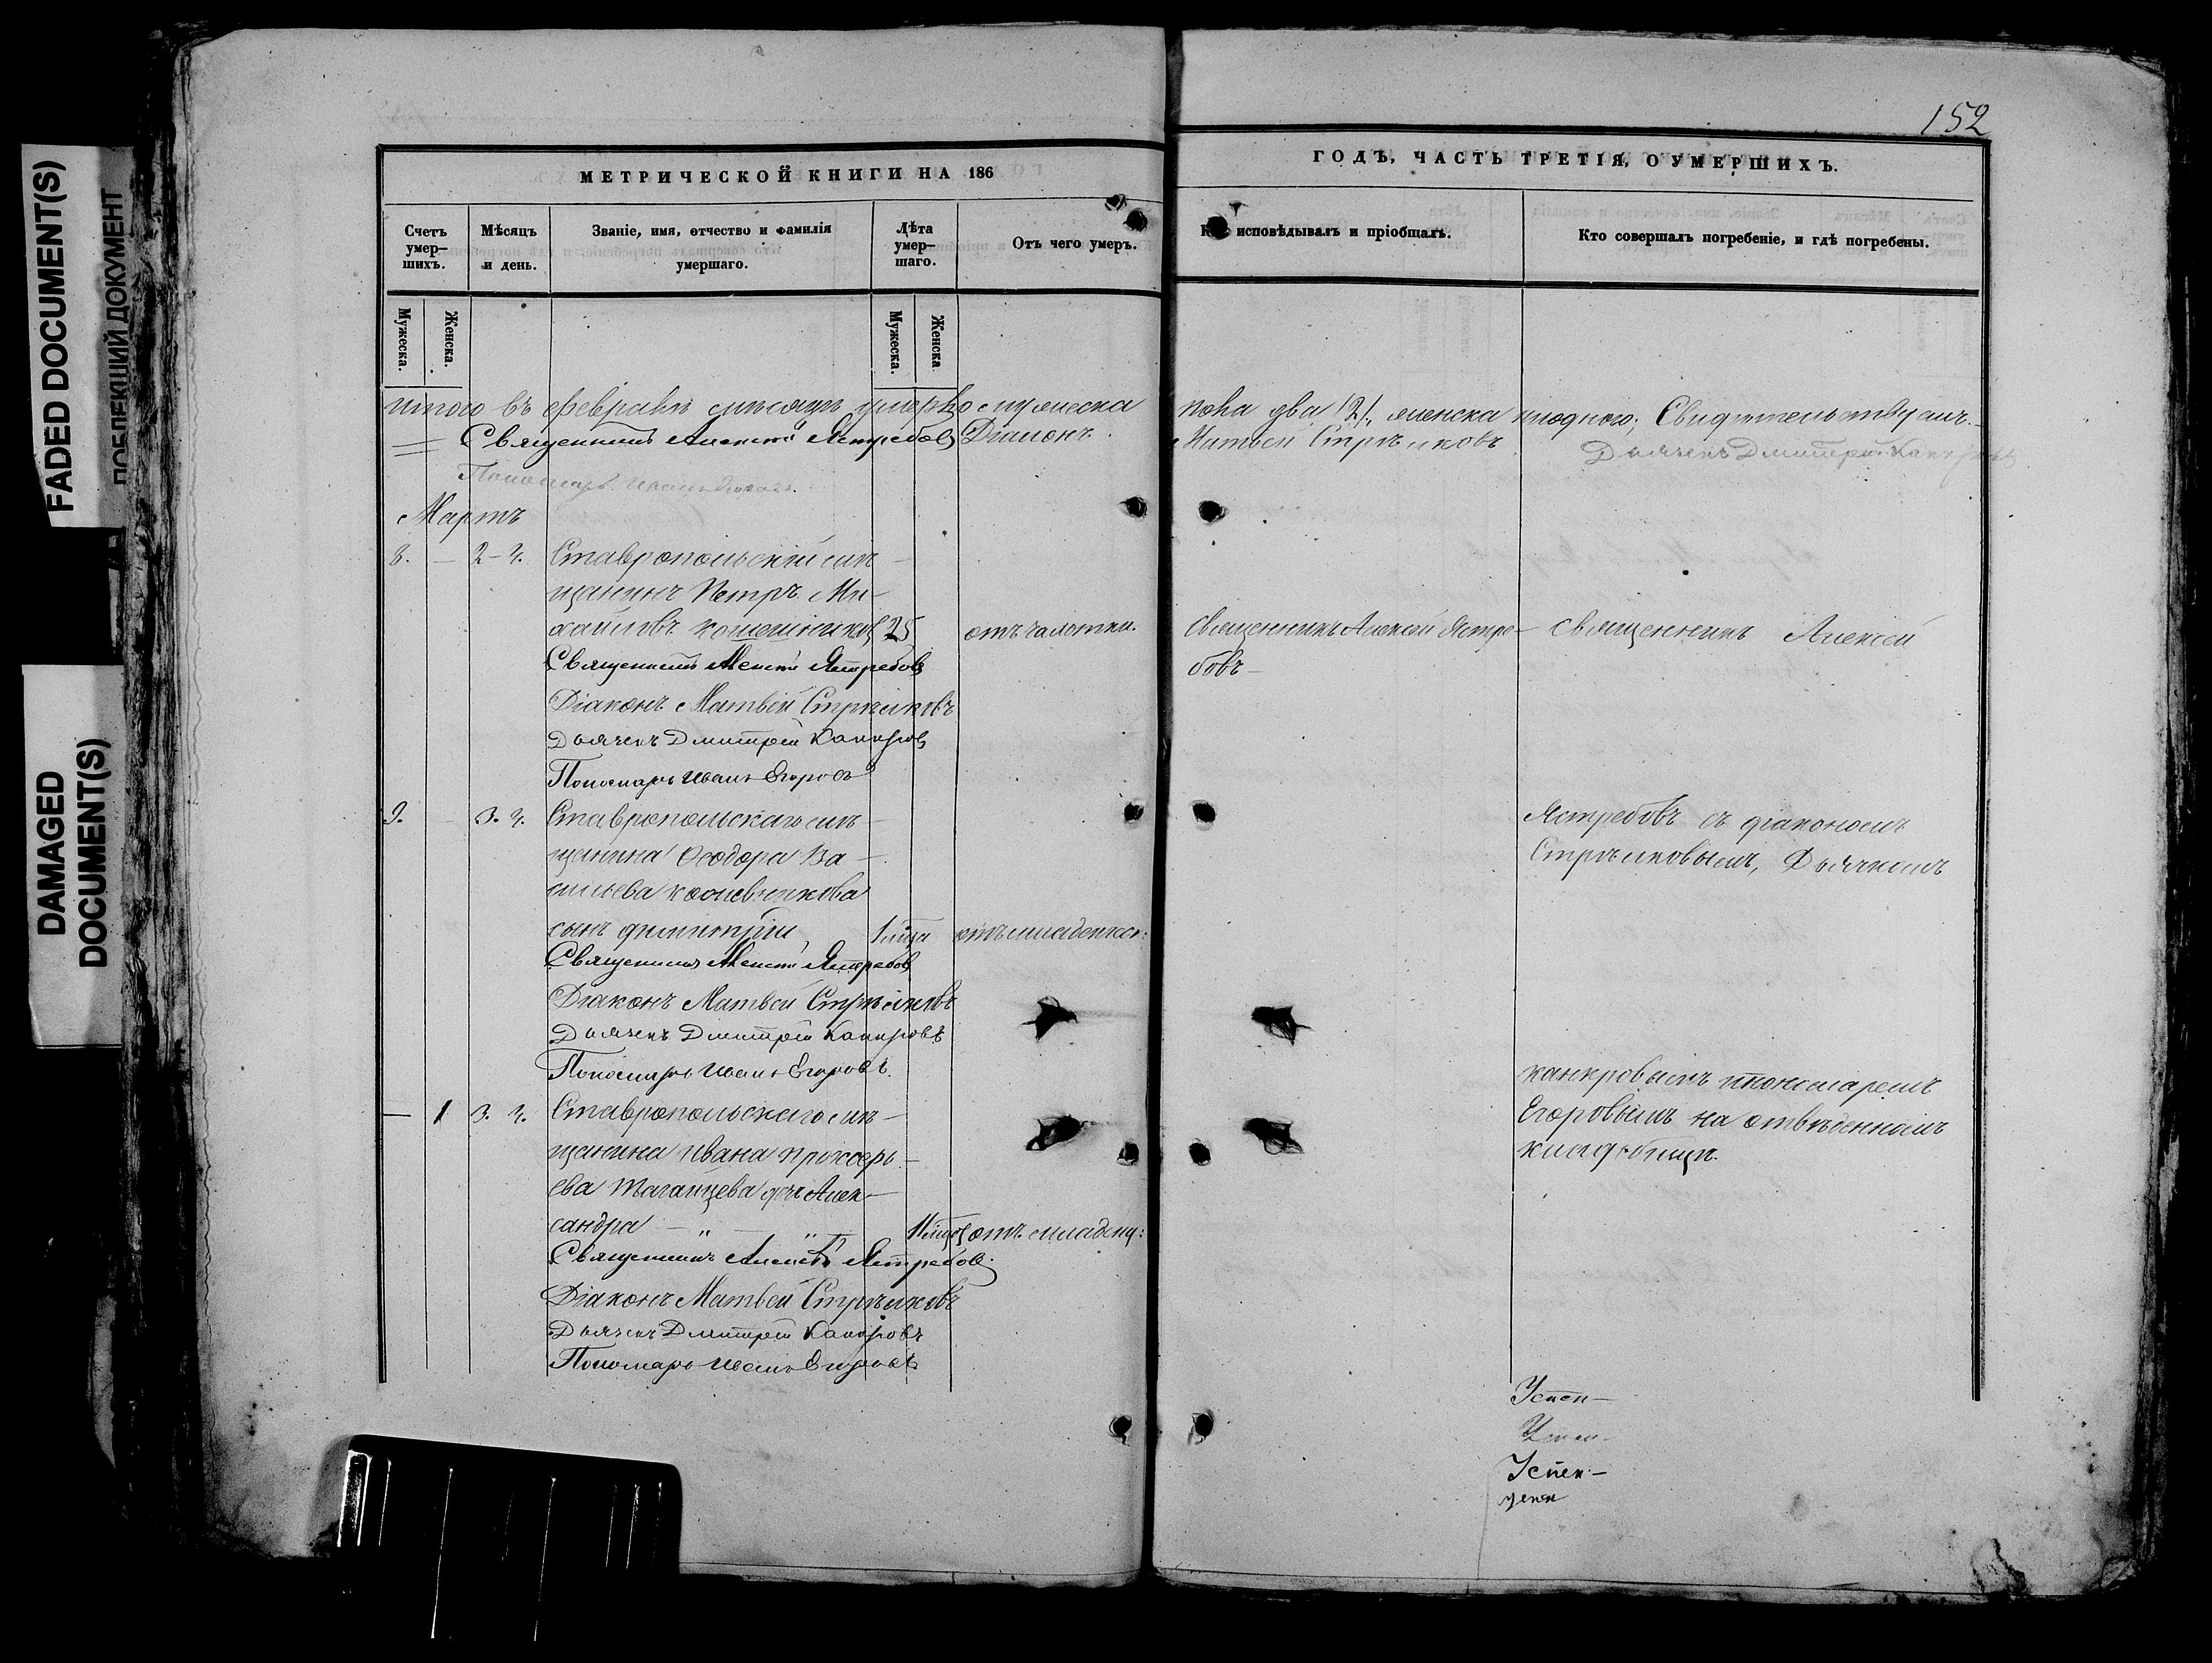 FADED DOCUMENT(S)
DAMAGED
DOCUMENT(S)
152
МЕТРИЧЕСКОЙ КНИГИ НА 186
Счетъ умер-шихъ.
Мѣсяцъ и день.
Званіе, имя, отчество и фамилія умершаго.
Лѣта умер-шаго.
Отъ чего умеръ.
Мужеска.
Женска.
Мужеска.
Женска
итого въ Февралѣ мѣсяцѣ умерло мужеска
Священникъ Алексѣй Ястребовъ Діаконъ
Пономарь Иванъ Егоровъ.
Мартъ
8. — 2 - 4. Ставропольскій мѣ-
щанинъ Петръ Ми-
хайловъ 25 отъ чахотки.
Священникъ Алексѣй Ястребовъ
Діаконъ Матвѣй Стрѣлковъ
Дьячекъ Дмитрій Канкровъ
Пономарь Иванъ Егоровъ
9. — 3. 4. Ставропольскаго мѣ-
щанина Ѳеодора Ва-
сильева
сынъ Димитрій 1 мѣца отъ младенческ:
Священникъ Алексѣй Ястребовъ
Діаконъ Матвѣй Стрѣлковъ
Дьячекъ Дмитрій Канкровъ
Пономарь Иванъ Егоровъ.
— 1 3. 4. Ставропольскаго мѣ-
щанина Ивана Прокофь-
ева Таганцева дочь Алек-
сандра — „ — „ — 11 мѣц отъ младенч:
Священникъ Алексѣй Ястребовъ.
Діаконъ Матвѣй Стрѣлковъ
Дьячекъ Дмитрій Канкровъ
Пономарь Иванъ Егоровъ
ГОДЪ, ЧАСТЬ ТРЕТІЯ, О УМЕРШИХЪ.
исповѣдывалъ и пріобщалъ.
Кто совершалъ погребеніе, и гдѣ погребены.
пола два /2/, женска ни одного; Свидѣтельствуемъ.
Матвей Стрѣлковъ
Дьячекъ Дмитрій Канкровъ
священникъ Алексѣй Ястре-
бовъ —
священникъ Алексѣй
Ястребовъ съ діакономъ
Стрѣлковымъ, Дьячкомъ
канкровымъ пономаремъ
Егоровымъ на отведенномъ
кладбищѣ.
Успен—
Успен-
Успен-